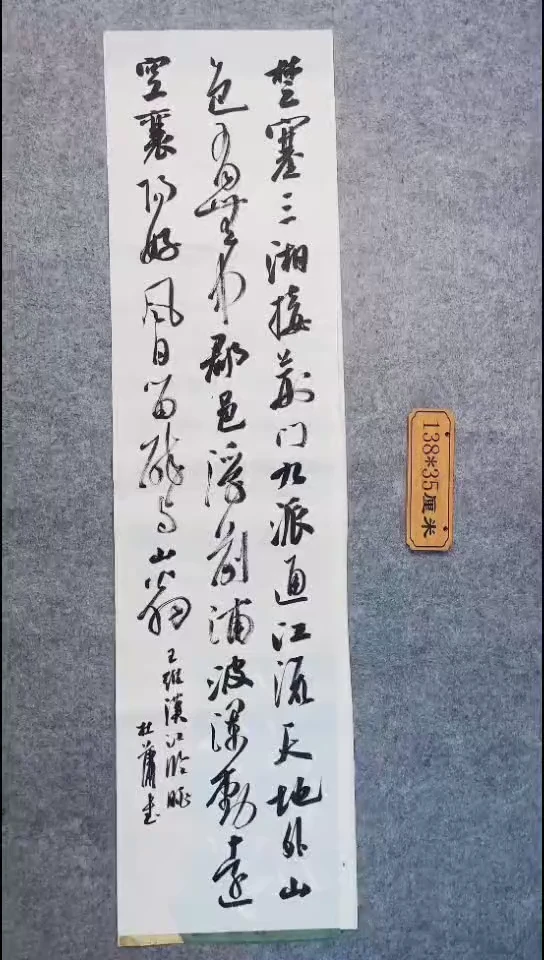 楚塞三湘接荆门九派通江流天地外山
色有無中郡邑浮前浦波澜動遠
空襄阳好風日留醉与山翁
王维漢江临眺
138*35厘米